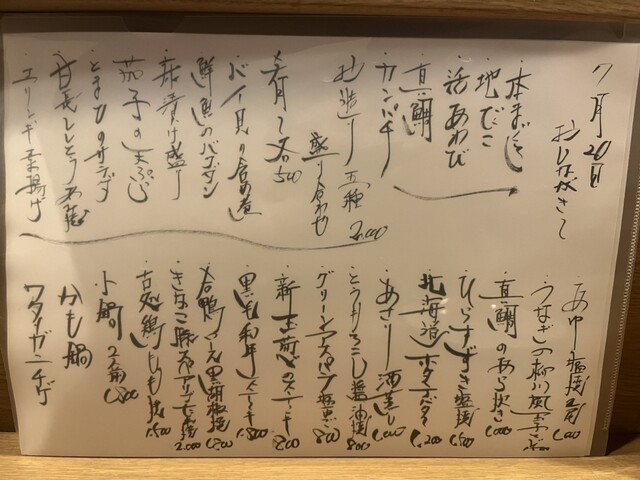 7月20日
おしながき
・本まぐろ
・地だこ
・活あわび
・真鯛
・カンパチ
お造り五種
盛り合わせ 2,000
各 500
・バイ貝の含め煮
・鮮魚のバクダン
・茄子の天ぷら
・とまとのサラダ
・甘長ししとう
・エリンギ素揚げ
・あゆ塩焼
・うなぎの柳川風玉子とじ
・真鯛のあら炊き 1,000
・ひらすずき塩焼 1,500
・北海道ホタテバター 1,200
・あさり酒蒸し 1,000
・とうもろこし醤油焼 800
・グリーンアスパラ塩 800
・新玉葱のステーキ 800
・黒毛和牛ステーキ 1,800
・合鴨ロース黒胡椒焼
・きなこ豚 2,000
・古処鶏もも焼 1,500
・小鍋 2人前 1,800
かも鍋
ワタリガニチゲ